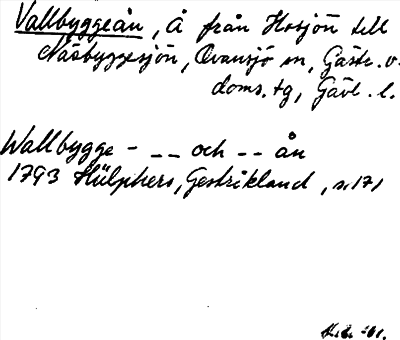 Vallbyggeån, å från Hosjön till
Näsbyggesjön, Ovansjö sn, Gästr. v.
doms. tg, Gävl. l.
Wallbygge - -- och -- ån
1793 Hülphers, Gestrikland, s. 171